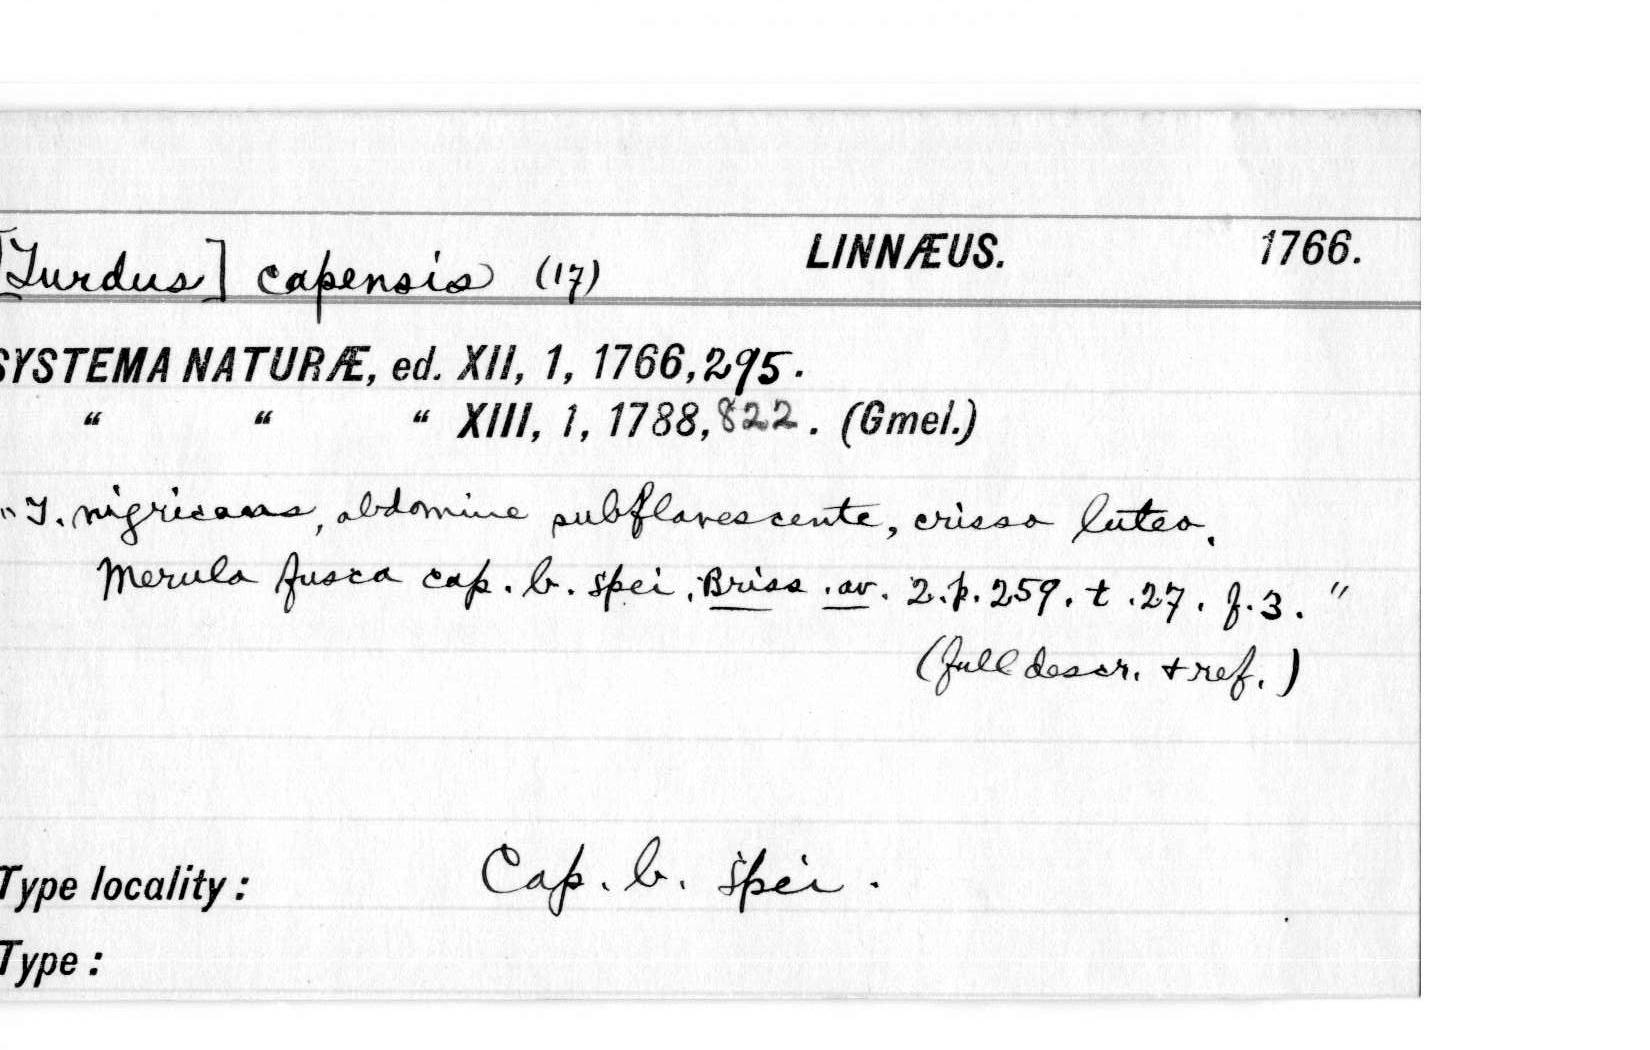 [Turdus] capensis (17) LINNÆUS. 1766.
SYSTEMA NATURÆ, ed. XII, 1, 1766, 295.
“ “ “ XIII, 1, 1788, 822. (Gmel.)
"T. nigricans, abdomine subflavescente, crisso luteo.
Merula fusca cap. b. spei. Briss. av. 2. p. 259. t. 27. f. 3."
(full descr. + ref.)
Type locality: Cap. b. spei.
Type: